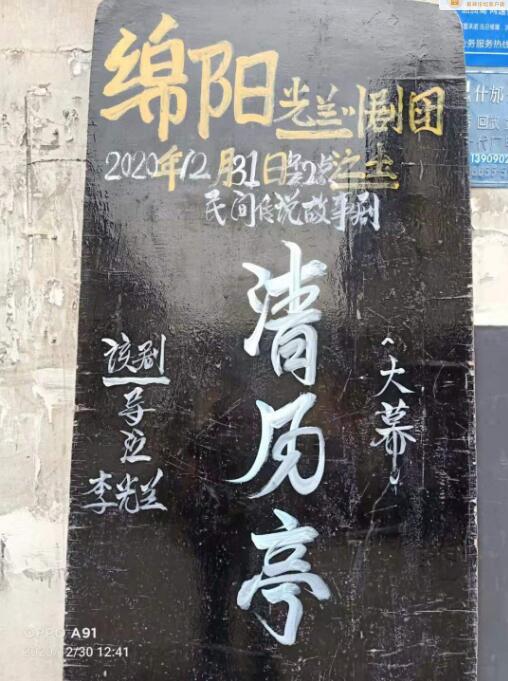 绵阳光兰川剧团
2020年12月31日 2点
民间传说故事剧
清风亭
(大幕)
该剖
导演
李光兰
什邡
务服务热线
OPPO A91
2020/12/30 12:41